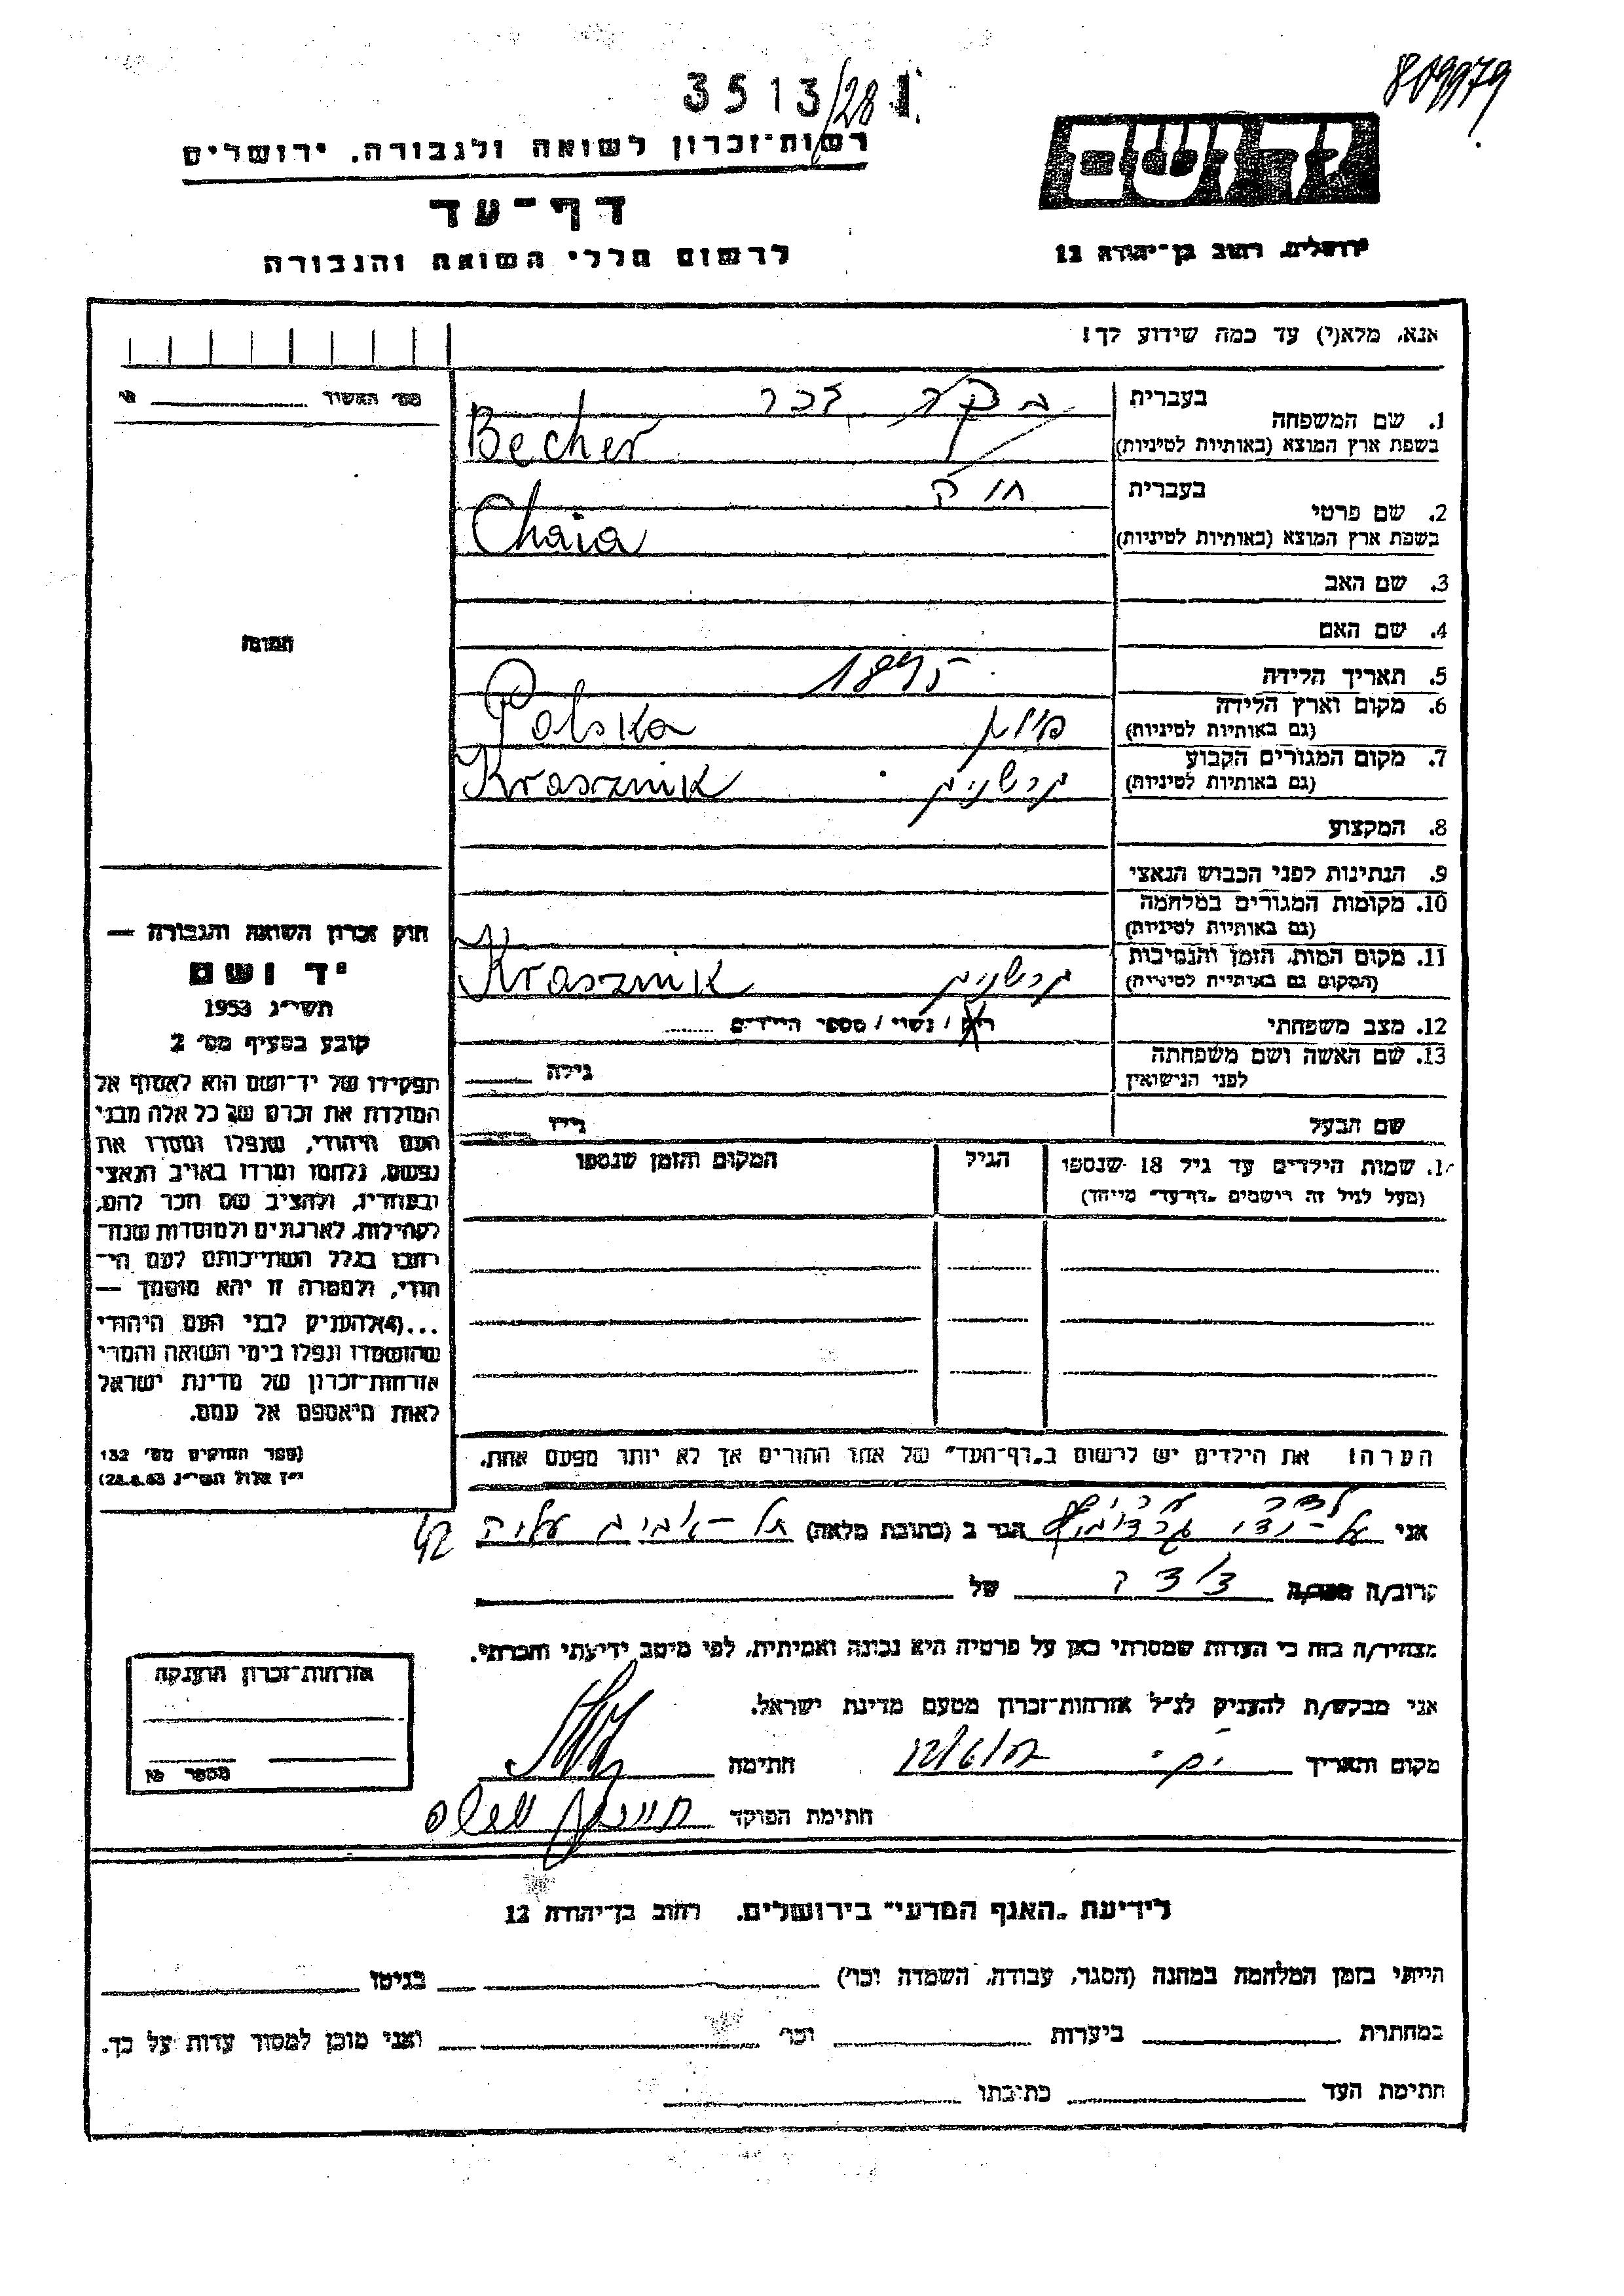 809979
3513/281
רשות־זכרון לשואה ולגבורה. ירושלים
יד ושם
דף־עד
ירושלים, רחוב בן־יהודה 12
לרשום חללי השואה והגבורה
אנא, מלא(י) עד כמה שידוע לך!
מס׳ האשור
בעברית
בכר
1. שם המשפחה
בשפת ארץ המוצא (באותיות לטיניות)
Becher
בעברית
2. שם פרטי
בשפת ארץ המוצא (באותיות לטיניות)
Chaia
3. שם האב
4. שם האם
5. תאריך הלידה
1895
6. מקום וארץ הלידה
(גם באותיות לטיניות)
פולין Polska
7. מקום המגורים הקבוע
(גם באותיות לטיניות)
קרשניק Krasznik
8. המקצוע
9. הנתינות לפני הכבוש הנאצי
10. מקומות המגורים במלחמה
(גם באותיות לטיניות)
11. מקום המות, הזמן והנסיבות
(המקום גם באותיות לטיניות)
קרשניק Krasznik
12. מצב משפחתי
/ נשוי / מספר הילדים
13. שם האשה ושם משפחתה
לפני הנישואין
גילה
שם הבעל
גילו
14. שמות הילדים עד גיל 18 שנספו
(מעל לגיל זה רושמים „דף־עד״ מיוחד)
הגיל
המקום והזמן שנספו
תמונה
חוק זכרון השואה והגבורה —
יד ושם
תשי״ג 1953
קובע בסעיף מס׳ 2
תפקידו של יד־ושם הוא לאסוף אל
המולדת את זכרם של כל אלה מבני
העם היהודי, שנפלו ומסרו את
נפשם, נלחמו ומרדו באויב הנאצי
ובעוזריו, ולהציב שם וזכר להם,
לקהילות, לארגונים ולמוסדות שנח־
רבו בגלל השתייכותם לעם הי־
הודי, ולמטרה זו יהא מוסמך —
...(4) להעניק לבני העם היהודי
שהושמדו ונפלו בימי השואה והמרי
אזרחות־זכרון של מדינת ישראל
לאות היאספם אל עמם.
(ספר החוקים מס׳ 132
י״ז אלול תשי״ג 28.8.53)
הערה! את הילדים יש לרשום ב„דף־העד״ של אחד ההורים אך לא יותר מפעם אחת.
אני
הגר ב (כתובת מלאה) תל-אביב עליה 42
קרוב/ה מכר/ה
של
מצהיר/ה בזה כי העדות שמסרתי כאן על פרטיה היא נכונה ואמיתית, לפי מיטב ידיעתי והכרתי.
אני מבקש/ת להעניק לנ״ל אזרחות־זכרון מטעם מדינת ישראל.
מקום ותאריך
חתימה
חתימת הפוקד
אזרחות־זכרון הוענקה
מספר
לידיעת „האגף המדעי״ בירושלים. רחוב בן־יהודה 12
הייתי בזמן המלחמה במחנה (הסגר, עבודה, השמדה וכו׳)
בגיטו
במחתרת
ביערות
וכו׳
ואני מוכן למסור עדות על כך.
חתימת העד
כתובתו